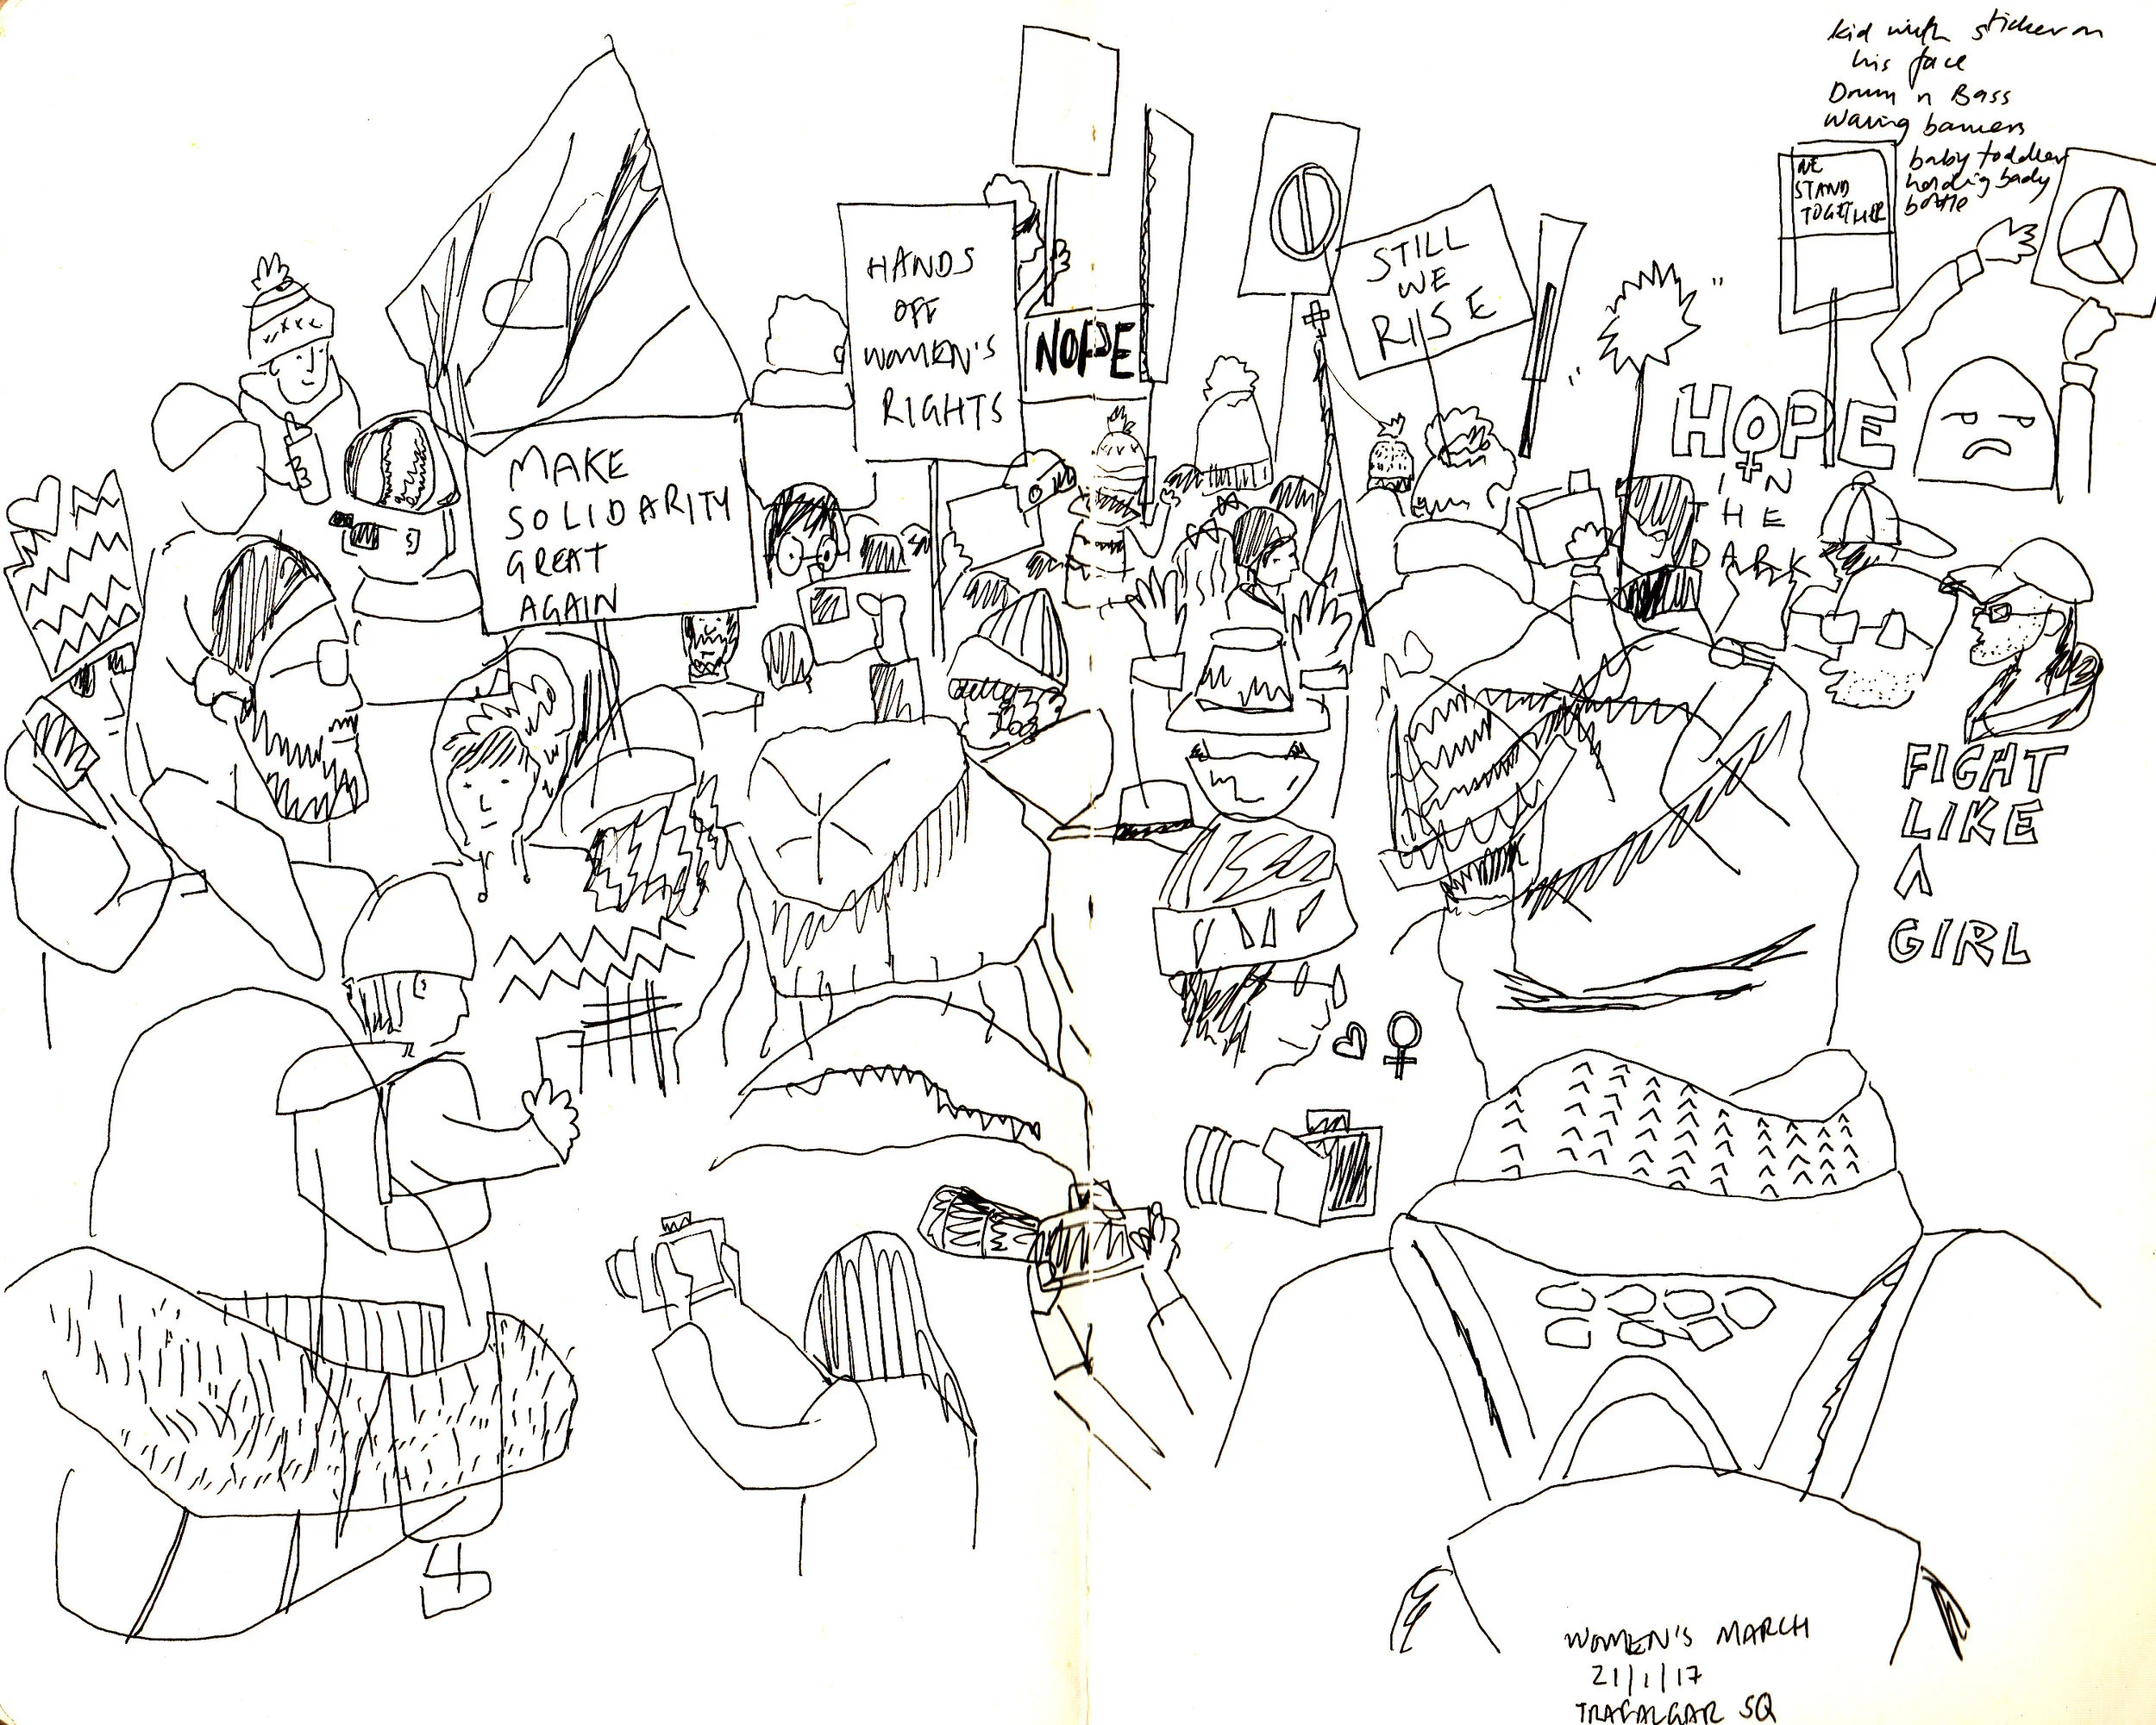 kid with sticker on
his face
Drum n Bass
waving banners
baby toddler
holding baby
bottle
WE
STAND
TOGETHER
HANDS
OFF
WOMEN'S
RIGHTS
NOPE
STILL
WE
RISE
HOPE
IN
THE
DARK
MAKE
SOLIDARITY
GREAT
AGAIN
FIGHT
LIKE
A
GIRL
WOMEN'S MARCH
21/1/17
TRAFALGAR SQ